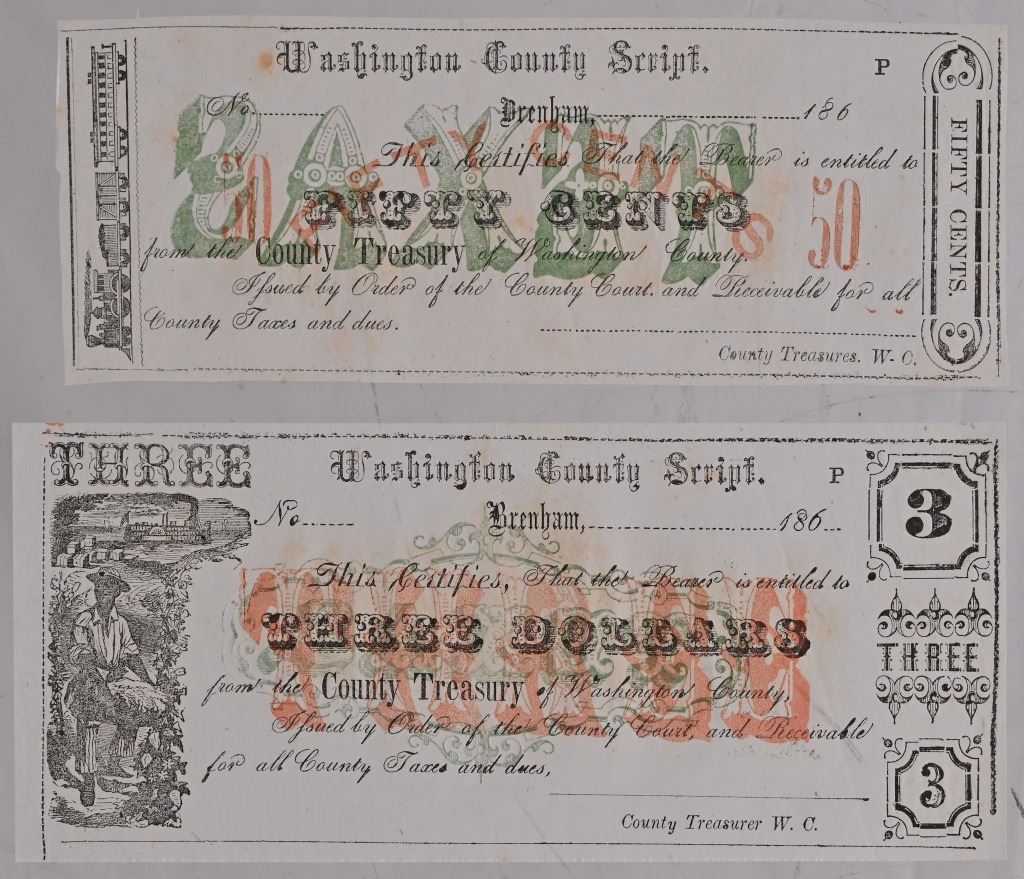 Washington County Script.
P
No. Brenham, 186
This Certifies That the Bearer is entitled to
50 FIFTY CENTS 50
FIFTY CENTS
from the County Treasury of Washington County.
Issued by Order of the County Court. and Receivable for all
County Taxes and dues.
County Treasures. W. C.
FIFTY CENTS.
THREE
Washington County Script.
P
3
No. Brenham, 186
This Certifies, That the Bearer is entitled to
THREE DOLLARS
from the County Treasury of Washington County,
Issued by Order of the County Court, and Receivable
for all County Taxes and dues,
County Treasurer W. C.
THREE
3